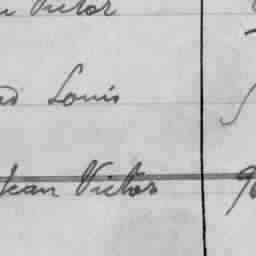 Victor
Louis
Jean Victor